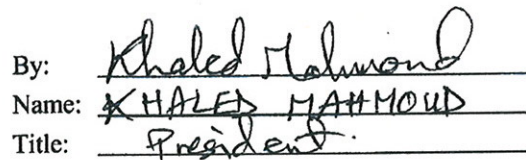 By: Khaled Mahmoud
Name: KHALED MAHMOUD
Title: President.